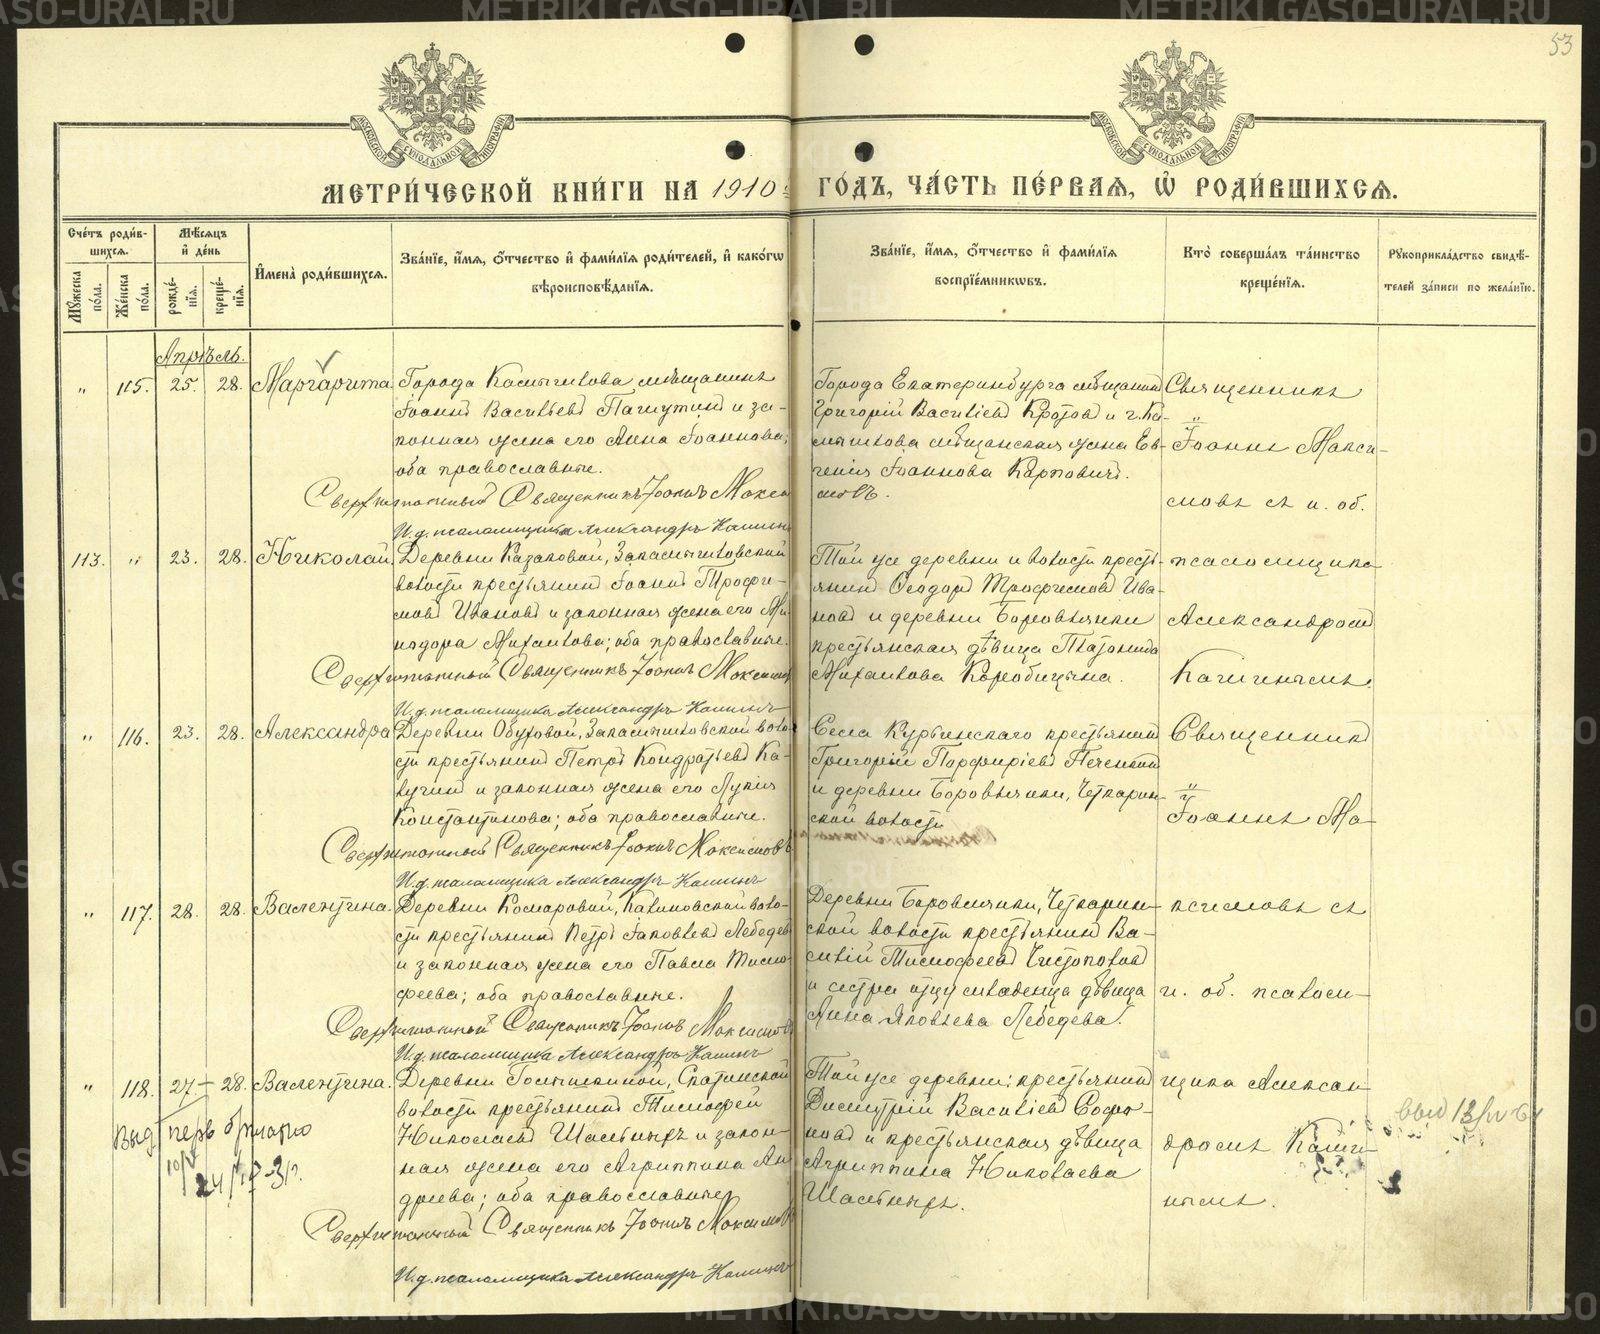 53
МЕТРИ́ЧЕСКОЙ КНИ́ГИ НА 1910 ГО́ДЪ, ЧА́СТЬ ПЕ́РВАЯ, Ѡ҆ РОДИ́ВШИХСЯ.
Сче́тъ роди́в-
шихся.
Мꙋ́жеска по́ла.
Же́нска по́ла.
Мѣ́сяцъ и҆ де́нь
рожде́-
нїя.
креще́-
нїя.
И҆мена̀ роди́вшихся.
Зва́нїе, и҆́мя, ѻ҆́тчество и҆ фами́лїя роди́телей, и҆ како́гѡ
вѣроисповѣ́данїя.
Зва́нїе, и҆́мя, ѻ҆́тчество и҆ фами́лїя
воспрїе́мникѡвъ.
Кто̀ соверша́лъ та́инство
креще́нїя.
Рꙋкоприкла́дство свидѣ́-
телей за́писи по жела́нїю.
Апрѣль.
" 115. 25. 28. Маргарита
Города Камышлова мѣщанинъ
Іоаннъ Васильевъ Пашутинъ и за-
конная жена его Анна Іоаннова;
оба православные.
Сверхштатный Священникъ Іоаннъ Макси
мовъ.
И.д. псаломщика Александръ Кашинъ
Города Екатеринбурга мѣщанинъ
Григорій Васильевъ Кротовъ и г. Ка-
мышлова мѣщанская жена Ев-
генія Іоаннова Карповичъ.
Священникъ
Іоаннъ Макси-
мовъ съ и. об.
113. " 23. 28. Николай
Деревни Казаковой, Закамышловской
волости крестьянинъ Іоаннъ Трофи-
мовъ Ивановъ и законная жена его Ми-
нодора Михаилова; оба православные.
Сверхштатный Священникъ Іоаннъ Максимов
И.д. псаломщика Александръ Кашинъ
Той же деревни и волости кресть-
янинъ Ѳеодоръ Трофимовъ Ива-
новъ и деревни Боровлянки
крестьянская дѣвица
Михаилова Коробицына.
псаломщика
Александромъ
Кашинымъ.
" 116. 23. 28. Александра
Деревни Обуховой, Закамышловской воло-
сти крестьянинъ Петръ Кондратьевъ Ка-
лугинъ и законная жена его Лукія
Константинова; оба православные.
Сверхштатный Священникъ Іоаннъ Максимовъ
И.д. псаломщика Александръ Кашинъ
Села Курьинскаго крестьянинъ
Григорій Порфиріевъ
и деревни Боровлянки, Четкарин-
ской волости
Священникъ
Іоаннъ Ма-
" 117. 28. 28. Валентина.
Деревни Комаровой, Калиновской воло-
сти крестьянинъ Петръ Іаковлевъ Лебедевъ
и законная жена его Павла Тимо-
феева; оба православные.
Сверхштатный Священникъ Іоаннъ Максимовъ
И.д. псаломщика Александръ Кашинъ
Деревни Боровлянки, Четкарин-
ской волости крестьянинъ Ва-
силій Тимофеевъ Чистополовъ
и сестра отцу младенца дѣвица
Анна Яковлева Лебедева.
ксимовъ съ
и. об. псалом-
" 118. 27 – 28. Валентина.
Деревни
волости крестьянинъ Тимофей
Николаевъ Шастынръ и закон-
ная жена его Агриппина Ан-
дреева; оба православные
Сверхштатный Священникъ Іоаннъ Максимовъ
И.д. псаломщика Александръ Кашинъ
Той же деревни; крестьянинъ
Димитрій Васильевъ Софро-
новъ и крестьянская дѣвица
Агриппина Николаева
щика Алексан-
дромъ Каши-
нымъ.
METRIKI.GASO-URAL.RU